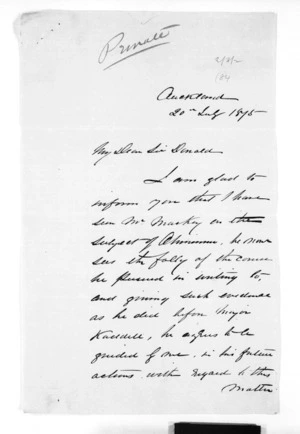 Private
Auckland
20th July 1875
My Dear Sir Donald
I am glad to
inform you that I have
seen Mr Mackay on the
subject of Ohinemuri, he now
sees the folly of the course
he pursued in writing to,
and giving such evidence
as he did before Major
Keddell, he agrees to be
guided by me, in his future
actions with regard to this
matter.